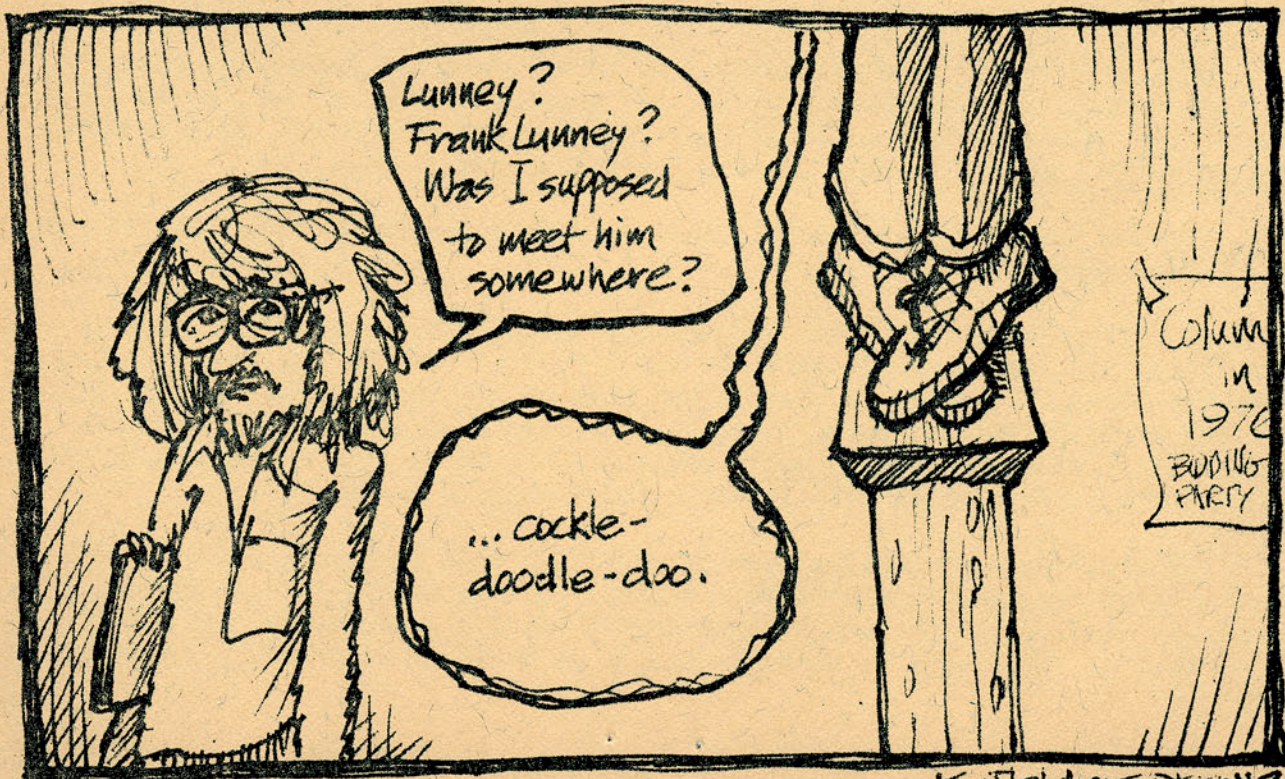 Lunney?
Frank Lunney?
Was I supposed
to meet him
somewhere?
...cockle-
doodle-doo.
Colum
in
1976
BIDDING
PARTY